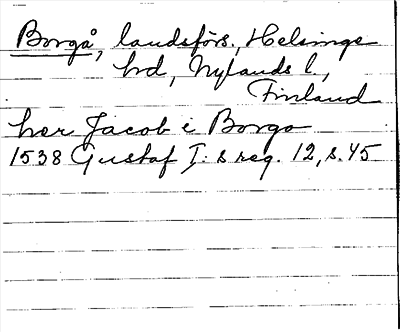 Borgå, landsförs., Helsinge
hd, Nylands l.,
Finland
her Jacob i Borgo
1538 Gustaf I:s reg. 12, s. 45